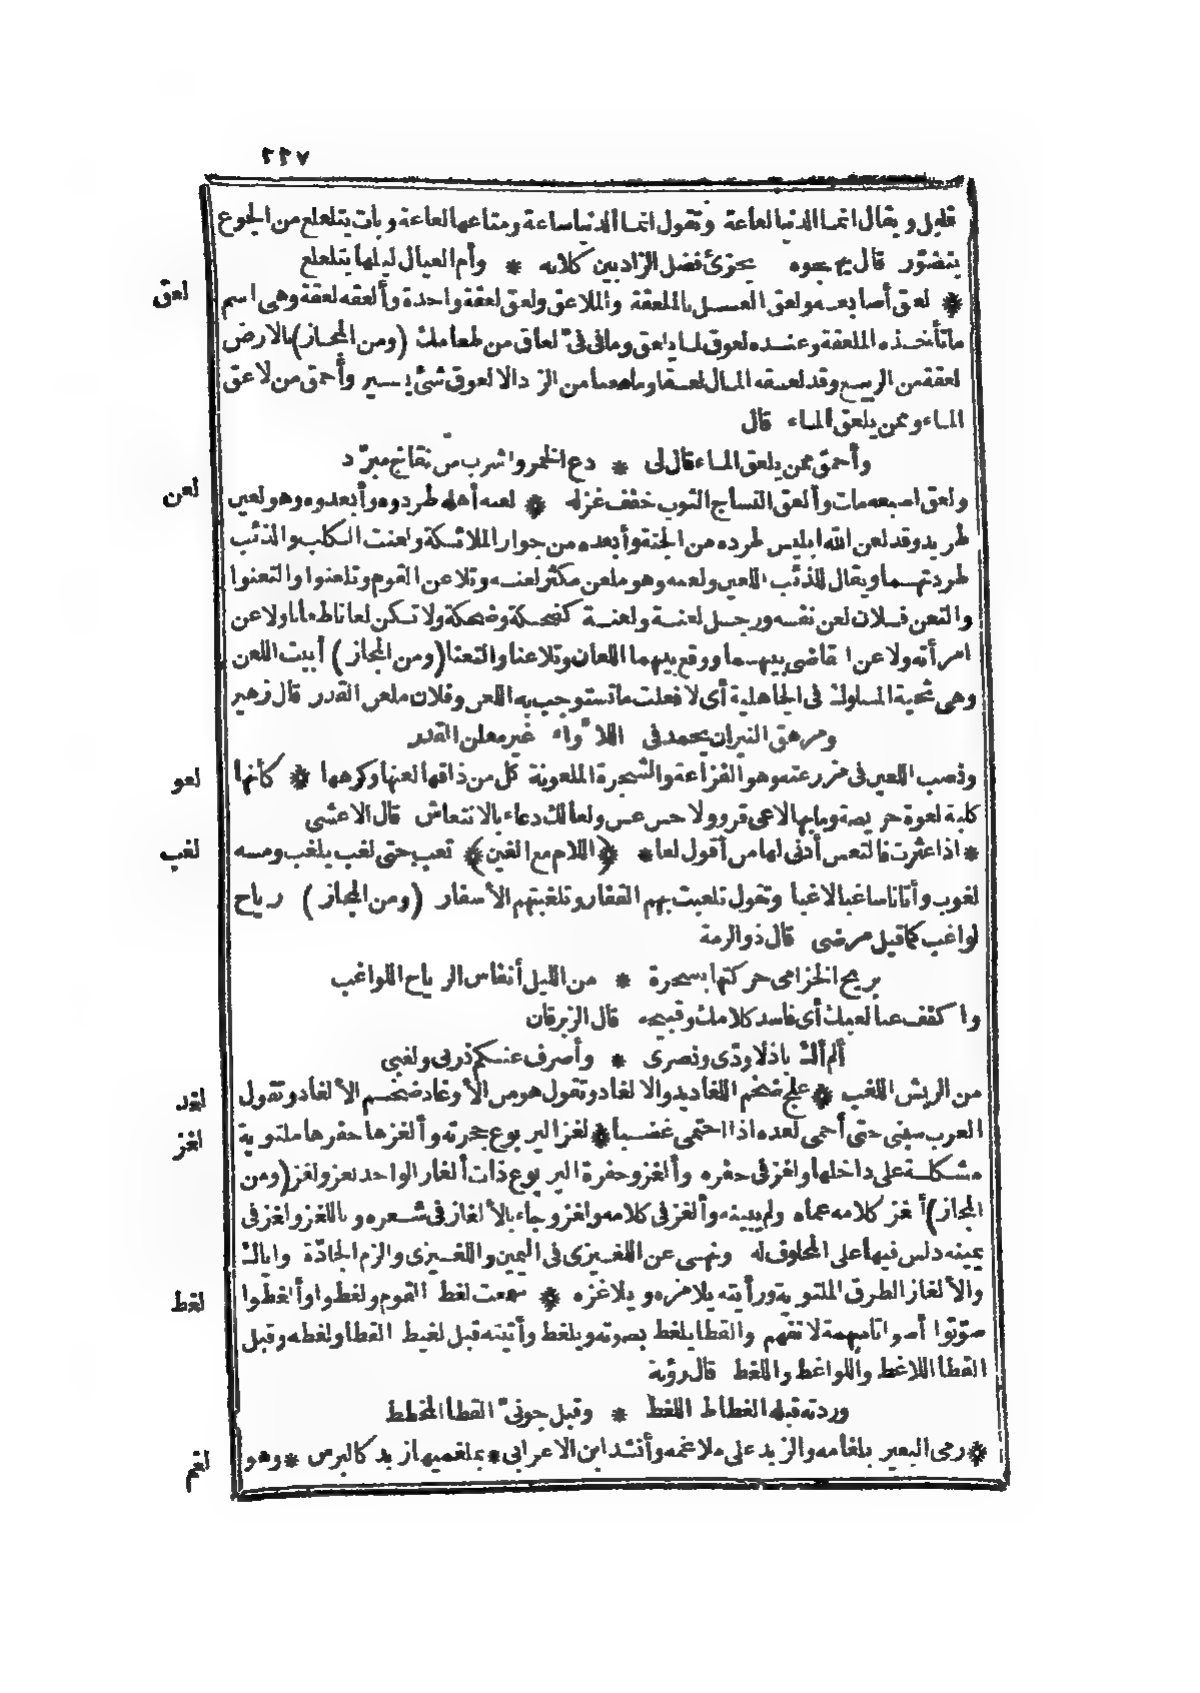 ٢٢٧
قليل ويقال انما الدنيا لعاعة وتقول انما الدنيا ساعة ومتاعها لعاعة وبات يتلعلع من الجوع
يتضوّر قال يهجوه يجزئ فضل الزاد بين كلابه * وأم العيال ليلها يتلعلع
لعق
* لعق أصابعه ولعق العسل بالملعقة والملاعق ولعق لعقة واحدة وألعقه لعقة وهي اسم
ما تأخذه الملعقة وعنده لعوق لما يلعق وما في فيّ لعاق من طعامك (ومن المجاز) بالارض
لعقة من الربيع وقد لعقه المال لعقا وما معنا من الزاد الا لعوق شئ يسير وأحمق من لاعق
الماء وممن يلعق الماء قال
وأحمق ممن يلعق الماء قال لى * دع الخمر واشرب من نقاخ مبرّد
لعن
ولعق اصبعه مات وألعق النساج الثوب خفف غزله * لعنه أهله طردوه وأبعدوه وهو لعين
طريد وقد لعن الله ابليس طرده من الجنة وأبعده من جوار الملائكة ولعنت الكلب والذئب
طردتهما ويقال للذئب اللعين ولعنه وهو ملعن مكثر لعنه وتلاعن القوم وتلعنوا والتعنوا
والتعن فلان لعن نفسه ورجل لعنة ولعنة كضحكة وضحكة ولا تكن لعانا طعانا ولاعن
امرأته ولاعن القاضى بينهما ووقع بينهما اللعان وتلاعنا والتعنا (ومن المجاز) أبيت اللعن
وهى تحية الملوك فى الجاهلية أى لا فعلت ما تستوجب به اللعن وفلان ملعن القدر قال زهير
ومرهق النيران يحمد فى اللأواء غير ملعن القدر
لعو
ونصب اللعين فى مزرعته وهو الفزاعة والشجرة الملعونة كل من ذاقها لعنها وكرهها * كأنها
كلبة لعوة حريصة وما بها لاعى قرو ولا حس عس ولعالك دعاء بالانتعاش قال الاعشى
لغب
* اذا عثرت فالتعس أدنى لها من أقول لعا * ﴿اللام مع الغين﴾ * تعب حتى لغب يلغب ومسه
لغوب وأتانا ساغبا لاغبا وتقول تلعبت بهم القفار وتلغبتهم الأسفار (ومن المجاز) رياح
لواغب كما قيل مرضى قال ذو الرمة
بريح الخزامى حركتها بسحرة * من الليل أنفاس الرياح اللواغب
واكفف عنا لغبك أى فاسد كلامك وقبيحه قال الزبرقان
ألم ألك باذلا ودّى ونصرى * وأصرف عنكم ذربى ولغبى
لغد
من الريش اللغب * علج ضخم اللغاديد والالغاد وتقول هو من الأوغاد ضخم الألغاد وتقول
لغز
العرب سيفى حتى أحمى لغده اذا احتمى غضبا * لغز اليربوع جحرته وألغزها حفرها ملتوية
مشكلة على داخلها ولغز فى حفره وألغز وحفرة اليربوع ذات ألغاز الواحد لغز ولغز (ومن
المجاز) ألغز كلامه عماه ولم يبينه وألغز فى كلامه ولغز وجاء بالألغاز فى شعره وباللغز ولغز فى
يمينه دلس فيها على المحلوف له ونهى عن اللغيزى فى اليمين واللغيزى والزم الجادّة واياك
لغط
والألغاز الطرق الملتوية ورأيته يلامزه ويلاغزه * سمعت لغط القوم ولغطوا وألغطوا
صوّتوا أصواتا مبهمة لا تفهم والقطا يلغط بصوته ويلغط وأتيته قبل لغيط القطا ولغطه وقبل
القطا اللاغط واللواغط واللغط قال رؤبة
وردته قبل الغطاط اللغط * وقبل جونىّ القطا المخطط
لغم
* رمى البعير بلغامه والزبد على ملاغمه وأنشد ابن الاعرابى * بملغميها زبد كالبرس * وهو